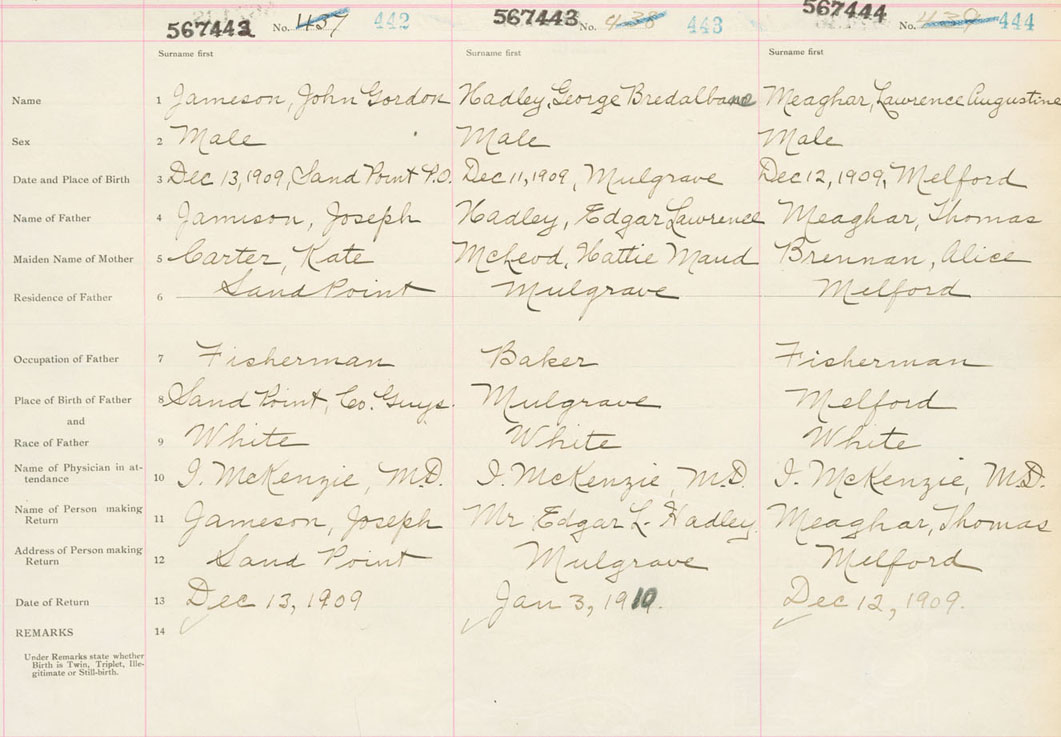 567443 No. 437 442 567443 No. 438 443 567444 No. 439 444
Surname first Surname first Surname first
Name 1 Jameson, John Gordon Hadley, George Bredalbane Meaghar, Lawrence Augustine
Sex 2 Male Male Male
Date and Place of Birth 3 Dec 13, 1909, Sand Point P.O. Dec 11, 1909, Mulgrave Dec 12, 1909, Melford
Name of Father 4 Jamison, Joseph Hadley, Edgar Lawrence Meaghar, Thomas
Maiden Name of Mother 5 Carter, Kate McLeod, Hattie Maud Brennan, Alice
Residence of Father 6 Sand Point Mulgrave Melford
Occupation of Father 7 Fisherman Baker Fisherman
Place of Birth of Father 8 Sand Point, Co. Guys. Mulgrave Melford
and
Race of Father 9 White White White
Name of Physician in at-
tendance 10 I. McKenzie, M.D. I. McKenzie, M.D. I. McKenzie, M.D.
Name of Person making
Return 11 Jameson, Joseph Mr Edgar L. Hadley. Meaghar, Thomas
Address of Person making
Return 12 Sand Point Mulgrave Melford
Date of Return 13 Dec 13, 1909 Jan 3, 1910. Dec 12, 1909.
REMARKS 14
Under Remarks state whether
Birth is Twin, Triplet, Ille-
gitimate or Still-birth.